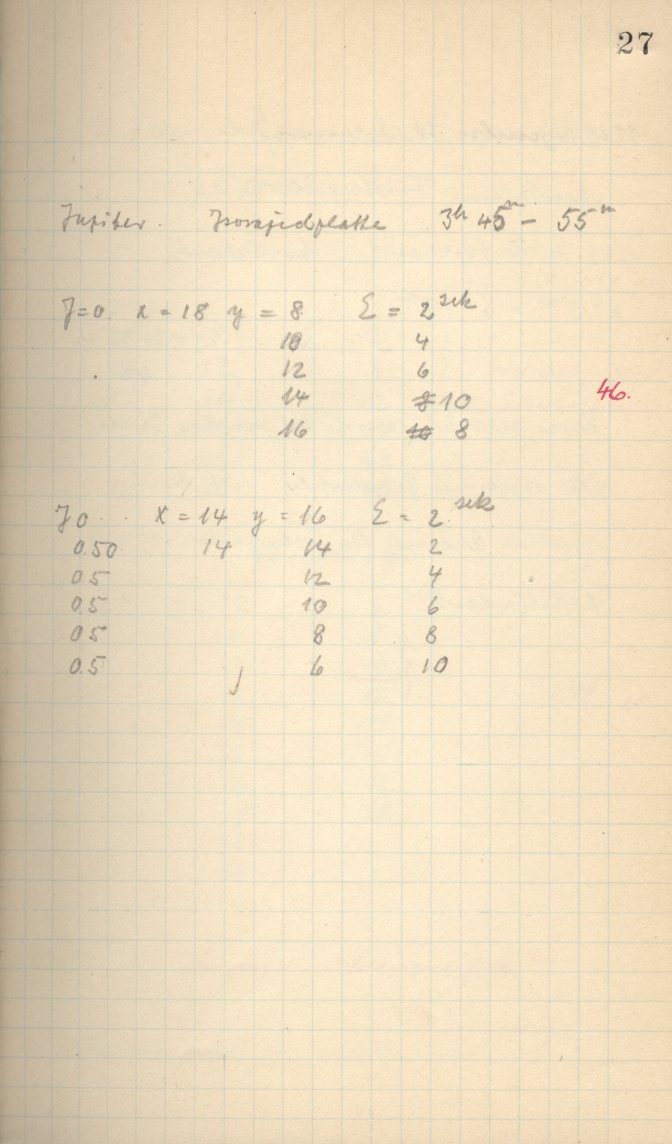 27
Jupiter. Isorapidplatte 3h 45m – 55m
J=0. x = 18 y = 8 Σ = 2 sek
10 4
12 6
14 8 10
46.
16 10 8
J 0 x = 14 y = 16 Σ = 2 sek
0.50 14 14 2
0.5 12 4
0.5 10 6
0.5 8 8
0.5 6 10